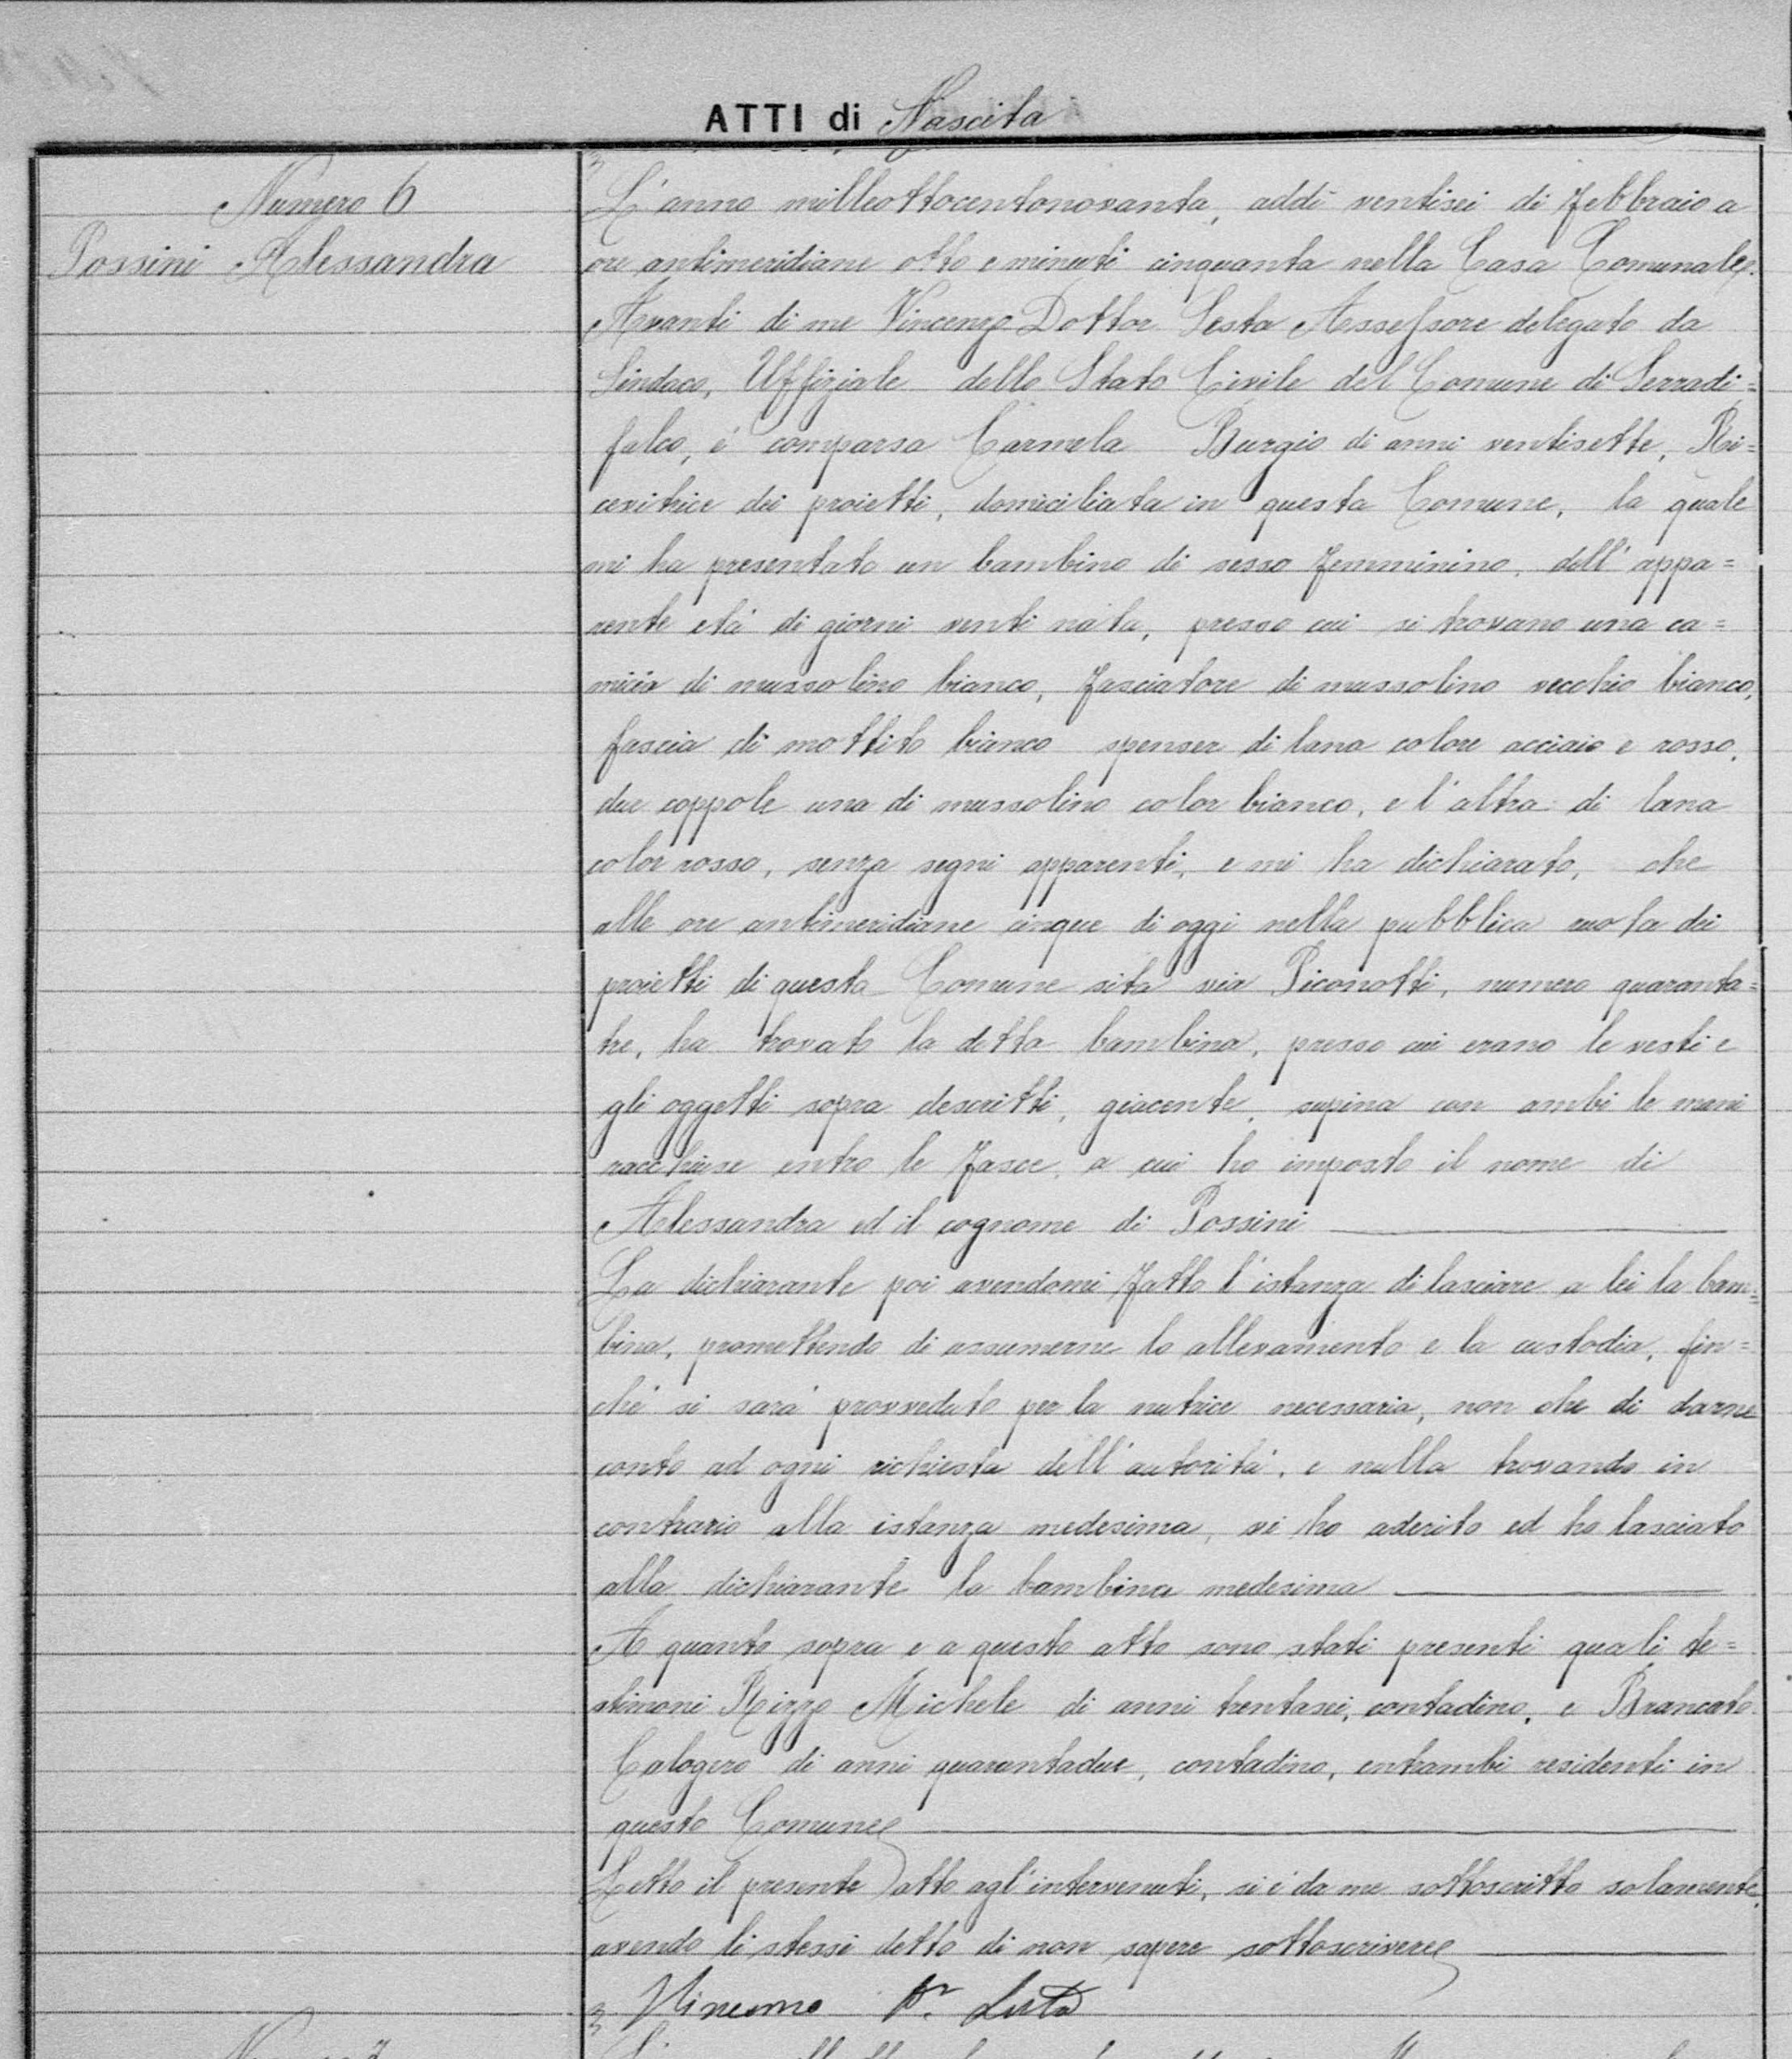 ATTI di Nascita
Numero 6
Possini Alessandra
L'anno milleottocentonovanta, addì ventisei di Febbraio a
ore antimeridiane otto e minuti cinquanta nella Casa Comunale.
Avanti di me Vincenzo Dottor Lesta Assessore delegato da
Sindaco, Uffiziale dello Stato Civile del Comune di Serradi=
falco, è comparsa Carmela Burgio di anni ventisette, Ri=
cevitrice dei proietti, domiciliata in questa Comune, la quale
mi ha presentato un bambino di sesso femminino, dell'appa=
rente età di giorni venti nata, presso cui si trovano una ca=
micia di mussolino bianco, fasciatore di mussolino vecchio bianco,
fascia di mottito bianco spenser di lana colore acciaio e rosso,
due coppole una di mussolino color bianco, e l'altra di lana
color rosso, senza segni apparenti, e mi ha dichiarato, che
alle ore antimeridiane cinque di oggi nella pubblica ruota dei
proietti di questa Comune sita via Piconotti, numero quaranta=
tre, ha trovato la detta bambina, presso cui erano le vesti e
gli oggetti sopra descritti, giacente, supina con ambi le mani
racchiuse entro le fasce, a cui ho imposto il nome di
Alessandra ed il cognome di Possini
La dichiarante poi avendomi fatto l'istanza di lasciare a lei la bam=
bina, promettendo di assumerne lo allevamento e la custodia, fin=
chè si sarà provveduto per la nutrice necessaria, non che di darne
conto ad ogni richiesta dell'autorità, e nulla trovando in
contrario alla istanza medesima, vi ho aderito ed ho lasciato
alla dichiarante la bambina medesima
A quanto sopra e a questo atto sono stati presenti quali te=
stimoni Rizzo Michele di anni trentasei, contadino, e Brancato
Calogero di anni quarantadue, contadino, entrambi residenti in
questo Comune
Letto il presente atto agl'intervenuti, si è da me sottoscritto solamente,
avendo li stessi detto di non sapere sottoscrivere
Vincenzo Dr. Lesta